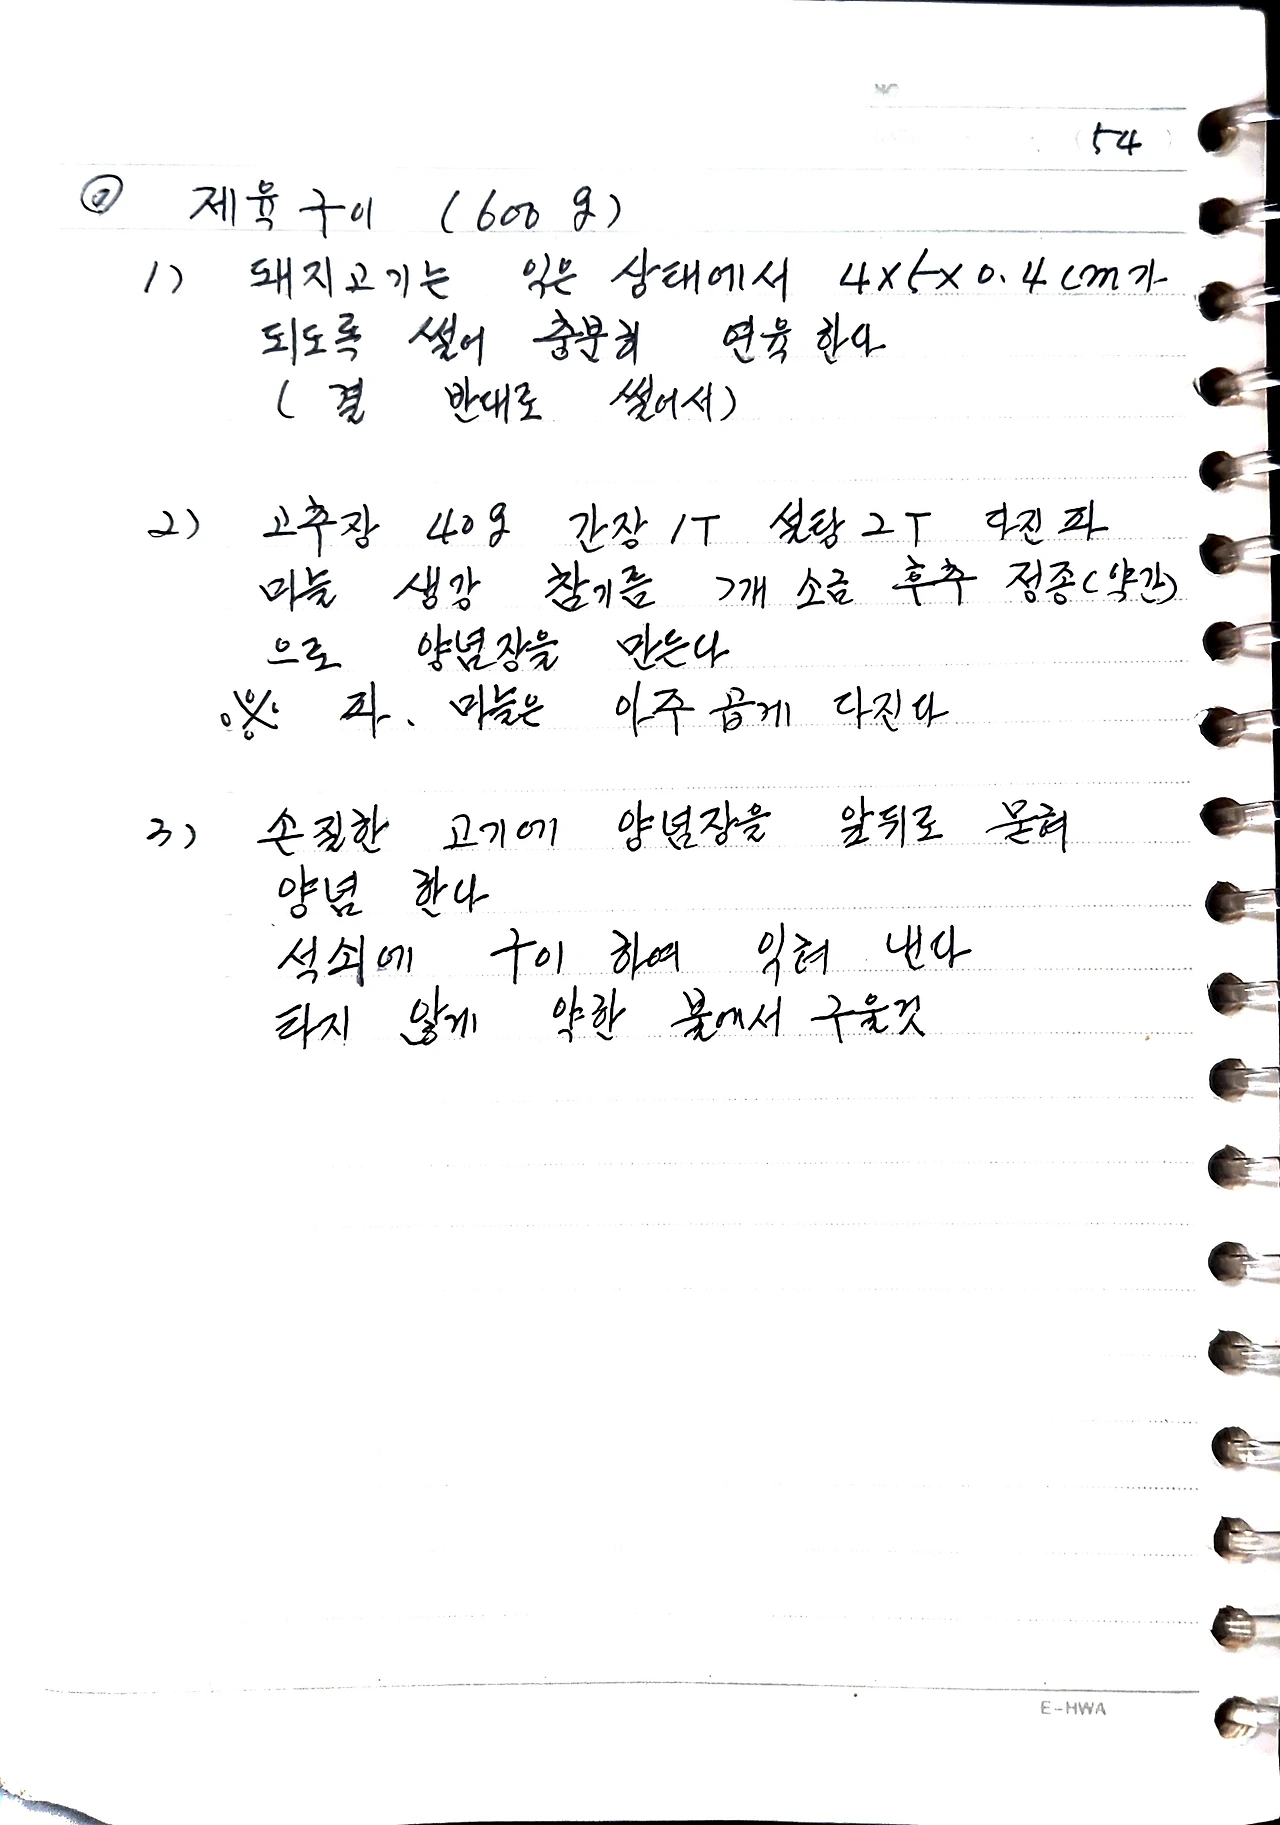 NO
(54)
② 제육구이 (600g)
1) 돼지고기는 익은 상태에서 4x5x0.4cm가
되도록 썰어 충분히 연육한다
(결 반대로 썰어서)
2) 고추장 40g 간장 1T 설탕 2T 다진파
마늘 생강 참기름 깨 소금 후추 정종(약간)
으로 양념장을 만든다
※ 파. 마늘은 아주 곱게 다진다
3) 손질한 고기에 양념장을 앞뒤로 묻혀
양념 한다
석쇠에 구이 하여 익혀 낸다
타지 않게 약한 불에서 구울것
E-HWA